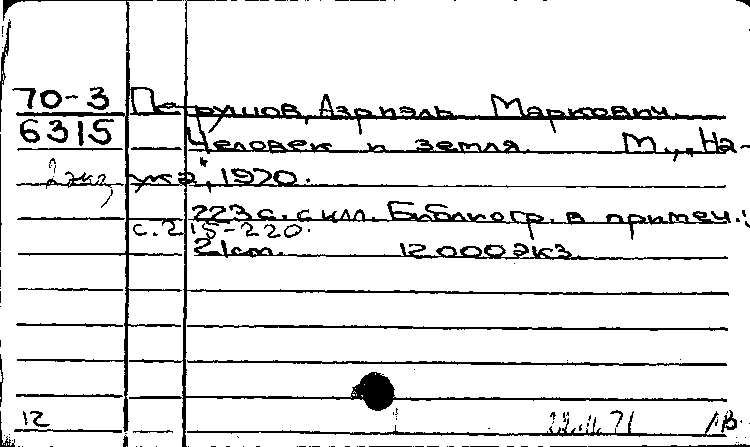 70-3 Петрушов, Азриэль Маркович.
6315 Человек и земля. М., "На-
2 экз ука", 1970.
223 с. с илл. Библиогр. в примеч.:
с. 215-220.
21 см. 12000 экз.
12 71 ЛВ